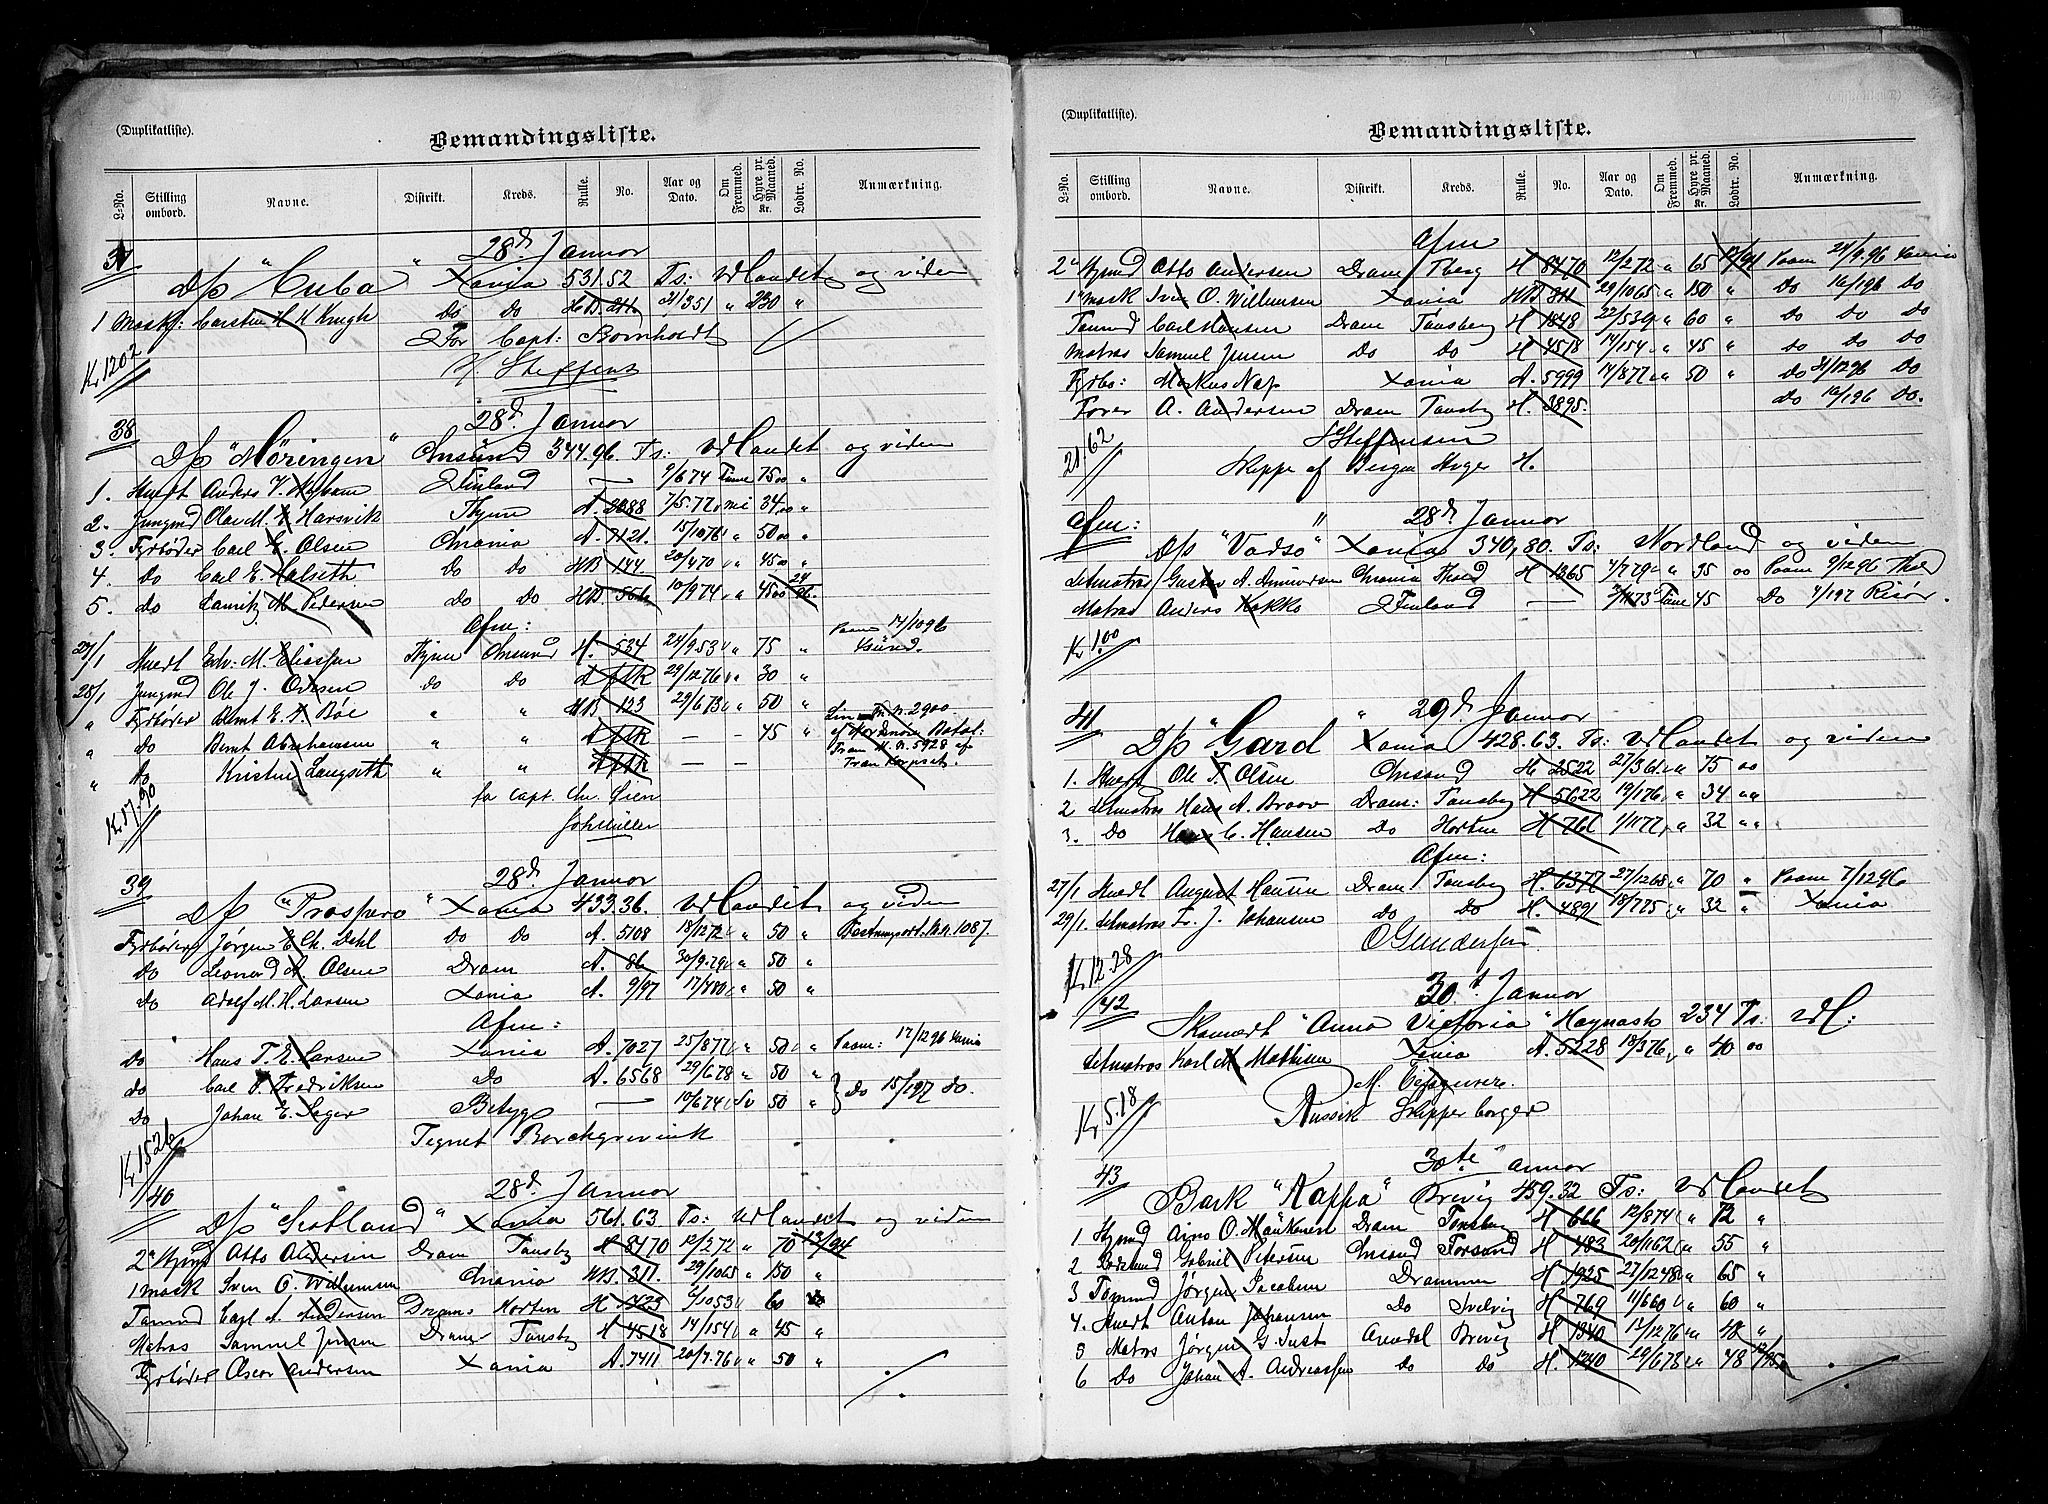 (Duplikatliste).
Bemandingsliste.
L-No. Stilling ombord. Navne. Distrikt. Kreds. Rulle. No. Aar og Dato. Om Fremmed. Hyre pr. Maaned. Kr. Lodtr. No. Anmærkning.
37 28d Januar
D/p "Cuba" Xania 531.52 Ts: Udlandet og viden
1 Mask: Carsten H. H. Krogh Do Do 21/3 51 " 230 "
For Capt: Bornholdt
Kr 1202
H. Steffens
38 28d Januar
D/p "Møringen" Chrsund 344.96. Ts: Udlandet og viden
1. Stuert Anders V. Finland — 9/6 74 75 00 "
2. Jungmd Olav M. Harsvik Thjem A. 2088 7/5.77 34.00 "
3. Fyrbøder Carl E. Olsen Chrania A. 7121. 15/10 76 " 50 00 "
4. Do Carl E. Halseth Do Do HB 144 20/4 70 " 45 00 "
5. Do Lauritz M. Pedersen Do Do HB. 20/9 74 " 45 00 24/96.
Afm:
27/1 Stuert Edv: M. Eliassen Thjem Chrsund H. 534 24/9 53 " 75 " Paam 14/10 96 Xsund.
28/1 Jungmd Ole J. Ovesen do Do 29/12 76 " 30 "
" Fyrbøder Bernt E. Bøe " " HB 123 29/6 73 " 50 "
" Do Bernt Abrahamsen " " — — 45 "
" Do Kristen Langseth " " — —
for Capt. Chr. Sien
Kr 57.90
Joh Müller
39 28d Januar
D/p "Prospero" Xania 433.36. Udlandet og viden
Fyrbøder Jørgen E. Ch. Dahl Do Do A. 5108 18/12 72 " 50 "
Do Leonard A. Olsen Dram A. 86 30/9.79 " 50 "
Do Adolf M. H. Larsen Xania A. 9/97 17/4 80 " 50 "
Afm:
Do Hans T. E. Larsen Xania A. 7027 25/8 77 " 50 " Paam: 17/12 96 Xania
do Carl F. Fredriksen Do A. 6568 29/6 78 " 50 "
Do Johan E. Seger — 10/6 74 50 " Do 15/1 97 do.
Tegnet Borchgrevink
Kr 15.26
40 28d Januar
D/p "Scotland" Xania 561.63. Ts: Udlandet og viden
2n Stymd Otto Andersen Dram Tønsbg H 8470 12/2 72 " 70 12/94
1 mask Sven O. Willumsen Chrania HB. 311. 29/10 65 " 150 "
Tømmd Carl A. Andersen Dram: Horten H 1723 10 53 " 60
Matros Samuel Jensen Dram Tønsbg H 4518 14/1 54 " 45 "
Fyrbøder Oscar Andersen Xania A. 7411 20/7.76 " 50 "
(Duplikatliste).
Bemandingsliste.
L-No. Stilling ombord. Navne. Distrikt. Kreds. Rulle. No. Aar og Dato. Om Fremmed. Hyre pr. Maaned. Kr. Lodtr. No. Anmærkning.
Afm
2n Stymd Otto Andersen Dram Tberg H 8470 12/2 72 " 65 12/94 Paam 21/9.96 Xania
1n Mask Sven O. Willumsen Xania HB 311 29/10 65 " 150 " Do 16/1 96 Do
Tømmd Carl Hansen Dram Tønsberg H 1848 22/5 39 " 60 " Do Do Do
Matros Samuel Jensen Do Do H 4518 14/1 54 " 45 " do Do Do
Fyrbø: Markus Nap Xania A. 5999 14/8 77 " 50 " Do 21/12 96 Do
A. Andersen Dram Tønsbg H. 3895. Do 16/1 96 Do.
21.62
Steffensen
Skippe af H.
Afm: 28d Januar
D/p "Vadsø" Xania 340,80. Ts: Nordland og viden
Letmatros Gustav A. Gunnersen Chrania H 1365 4/7 79 " 35 00 Paam 9/12 96
Matros Anders Kokko Finland — 45 Do 4/1 97 Risør.
Kr 1.00
41 29d Januar
D/p "Gard" Xania 428.63. Ts: Udlandet og viden
1. Stuert Ole T. Olsen Chrsand H. 2522 25/3 61 " 75 00
2 Letmatros Hans A. Braov Dram: Tønsbg H 5622 19/1 76 " 34 "
3. Do Hans C. Hansen Do Horten H 761 1/11 77 " 32 "
Afm:
27/1 Stuert August Hansen Dram Tønsbg H. 6377 27/12 68 " 70 " Paam 7/12 96
29/1. Letmatros Fr. J. Johansen Do Do H. 4891 18/7 75 " 32 " Xania
O Gundersen
Kr 12.28
42 30d Januar
Skonnert "Anna Victoria" 234 Ts: Udl:
Letmatros Karl M. Mathisen Xania A. 5228 18/3 76 " 40 00
Kr 5.18
Russisk Skipper borger
43 30te Januar
Bark "Kappa" Brevig 459.32 Ts: Udlandet
1 Stymd O. Dram Tønsbg H 666 12/8 74 " 72 "
2 Gabriel Petersen Chrsand Farsund H 483 20/11 62 " 55 "
3 Tømmd Jørgen Jacobsen Drammen H 1925 27/12 48 " 65 "
4. Stuert Anton Johansen Do Svelvig H 769 11/6 60 " 60 "
5 Matros Jørgen G. Just Arendal Brevig H 1340 12/12 76 " 48 "
6 Do Johan A. Andreassen Do Do H. 1240 20/6 73 " 48